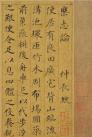 樂志論　仲長統
使居有良田廣宅背山臨流
溝池環匝竹木周布場圃築
前果園樹後舟車足以代步涉
之難使令足以息四體之役養親